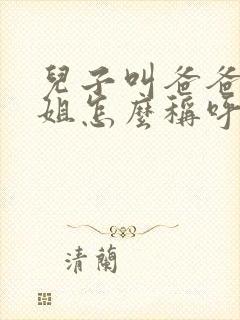 兒子叫爸爸
姐怎麼稱呼
清蘭